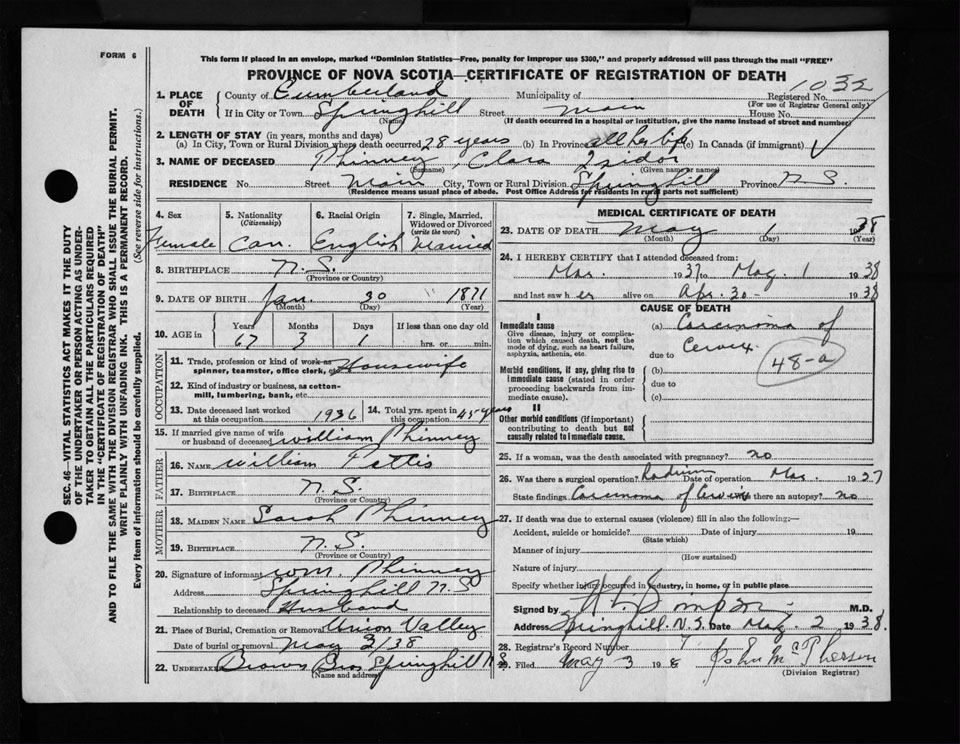 FORM 6
This form if placed in an envelope, marked "Dominion Statistics—Free, penalty for improper use $300," and properly addressed will pass through the mail "FREE"
PROVINCE OF NOVA SCOTIA—CERTIFICATE OF REGISTRATION OF DEATH
SEC. 46—VITAL STATISTICS ACT MAKES IT THE DUTY
OF THE UNDERTAKER OR PERSON ACTING AS UNDER-
TAKER TO OBTAIN ALL THE PARTICULARS REQUIRED
IN THE "CERTIFICATE OF REGISTRATION OF DEATH"
AND TO FILE THE SAME WITH THE DIVISION REGISTRAR WHO SHALL ISSUE THE BURIAL PERMIT.
WRITE PLAINLY WITH UNFADING INK. THIS IS A PERMANENT RECORD.
Every item of information should be carefully supplied. (See reverse side for instructions.)
1. PLACE OF DEATH
County of Cumberland Municipality of Registered No. 1032
(For use of Registrar General only)
If in City or Town Springhill Street Main House No.
(Name) (If death occurred in a hospital or institution, give the name instead of street and number)
2. LENGTH OF STAY (in years, months and days)
(a) In City, Town or Rural Division where death occurred 28 years (b) In Province all her life (c) In Canada (if immigrant)
3. NAME OF DECEASED Phinney, Clara Isidor
(Surname) (Given name or names)
RESIDENCE No. Street Main City, Town or Rural Division Springhill Province N.S.
(Residence means usual place of abode. Post Office Address for residents in rural parts not sufficient)
4. Sex Female
5. Nationality (Citizenship) Can.
6. Racial Origin English
7. Single, Married, Widowed or Divorced (write the word) Married
8. BIRTHPLACE N.S.
(Province or Country)
9. DATE OF BIRTH Jan. 30 1871
(Month) (Day) (Year)
10. AGE in Years 67 Months 3 Days 1 If less than one day old hrs. or min.
OCCUPATION
11. Trade, profession or kind of work as spinner, teamster, office clerk, etc. Housewife
12. Kind of industry or business, as cotton-mill, lumbering, bank, etc.
13. Date deceased last worked at this occupation 1936
14. Total yrs. spent in this occupation 45 years
15. If married give name of wife or husband of deceased William Phinney
FATHER
16. NAME William
17. BIRTHPLACE N.S.
(Province or Country)
MOTHER
18. MAIDEN NAME Sarah Phinney
19. BIRTHPLACE N.S.
(Province or Country)
20. Signature of informant Wm. Phinney
Address Springhill N.S
Relationship to deceased Husband
21. Place of Burial, Cremation or Removal Union Valley
Date of burial or removal May 3/38
22. UNDERTAKER Brown Bros Springhill N.S
(Name and address)
MEDICAL CERTIFICATE OF DEATH
23. DATE OF DEATH May 1 1938
(Month) (Day) (Year)
24. I HEREBY CERTIFY that I attended deceased from:
Mar. 1937 to May 1 1938
and last saw her alive on Apr. 30 - 1938
CAUSE OF DEATH
I
Immediate cause (a) Carcinoma of
Give disease, injury or complication which caused death, not the mode of dying, such as heart failure, asphyxia, asthenia, etc.
due to Cervix
48-a
Morbid conditions, if any, giving rise to immediate cause (stated in order proceeding backwards from immediate cause).
(b)
due to
(c)
II
Other morbid conditions (if important) contributing to death but not causally related to immediate cause.
25. If a woman, was the death associated with pregnancy? no
26. Was there a surgical operation? Radium Date of operation Mar. 1937
State findings Carcinoma of Cervix Was there an autopsy? no
27. If death was due to external causes (violence) fill in also the following:—
Accident, suicide or homicide? Date of injury 19
(State which)
Manner of injury
(How sustained)
Nature of injury
Specify whether injury occurred in industry, in home, or in public place
Signed by M.D.
Address Springhill. N.S. Date May 2 1938.
28. Registrar's Record Number 7
29. Filed May 3 1938 John McPherson
(Division Registrar)